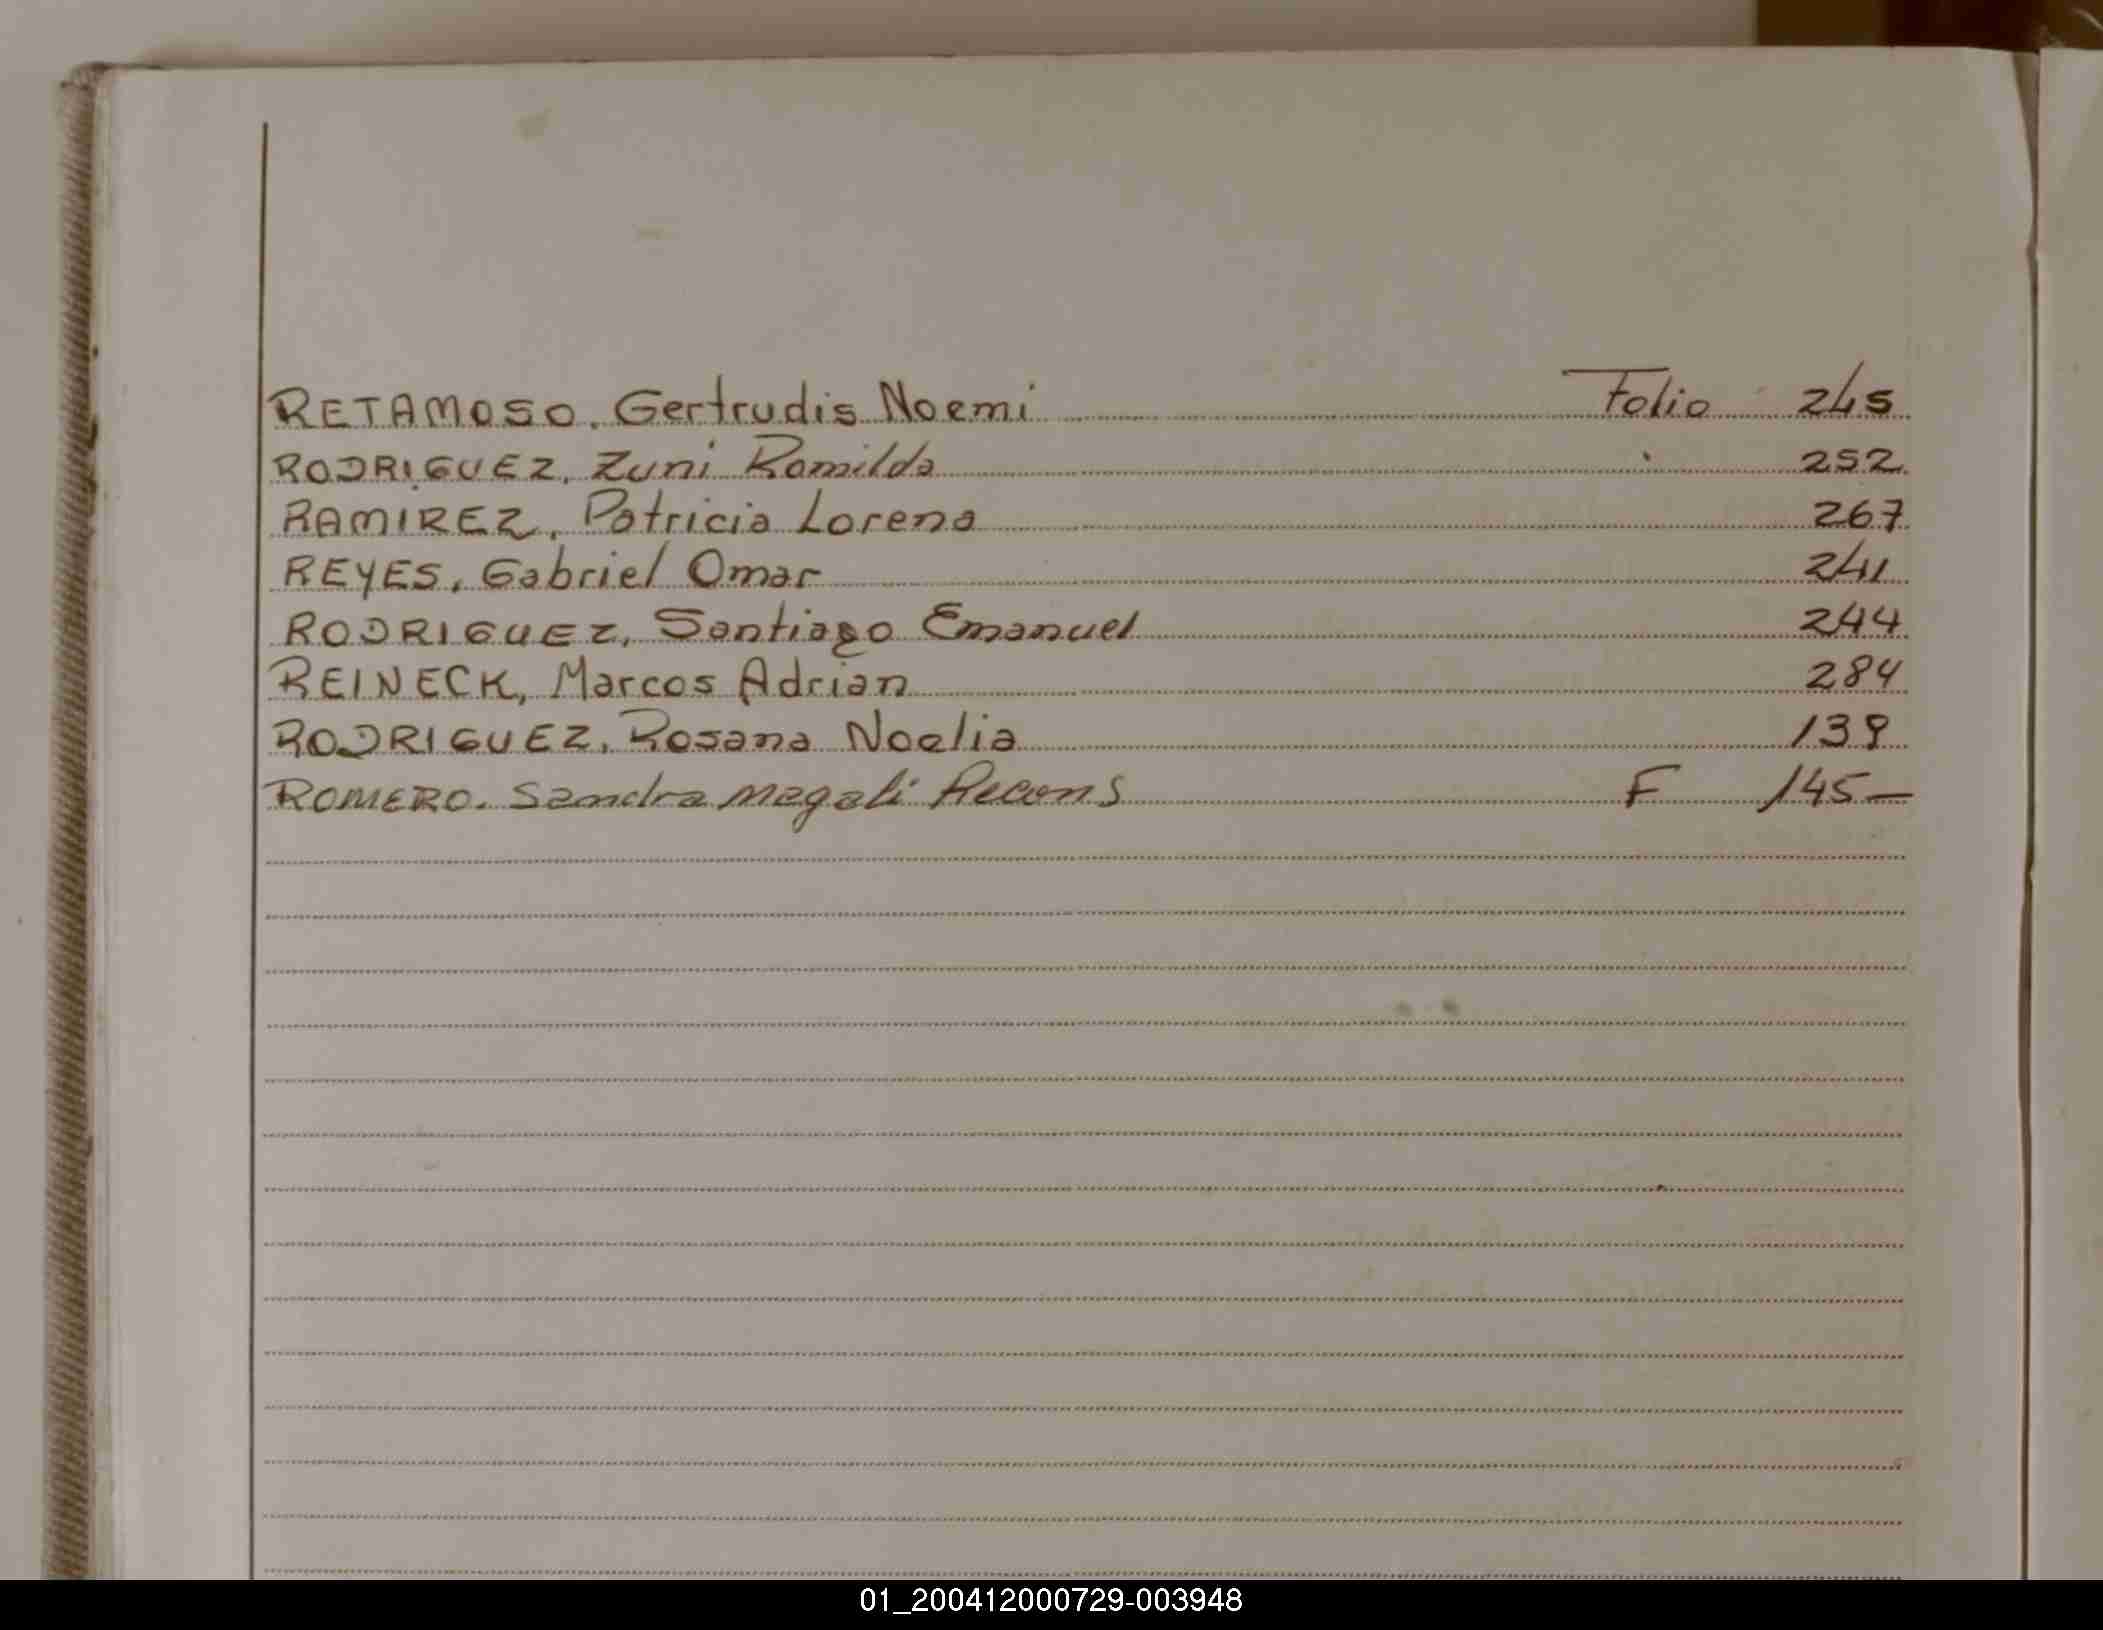 RETAMOSO, Gertrudis Noemi Folio 245
RODRIGUEZ, Zuni Romilda 252
RAMIREZ, Patricia Lorena 267
REYES, Gabriel Omar 241
RODRIGUEZ, Santiago Emanuel 244
REINECK, Marcos Adrian 284
RODRIGUEZ, Rosana Noelia 139
ROMERO. Sandra Magali Recons F 145—
01_200412000729-003948